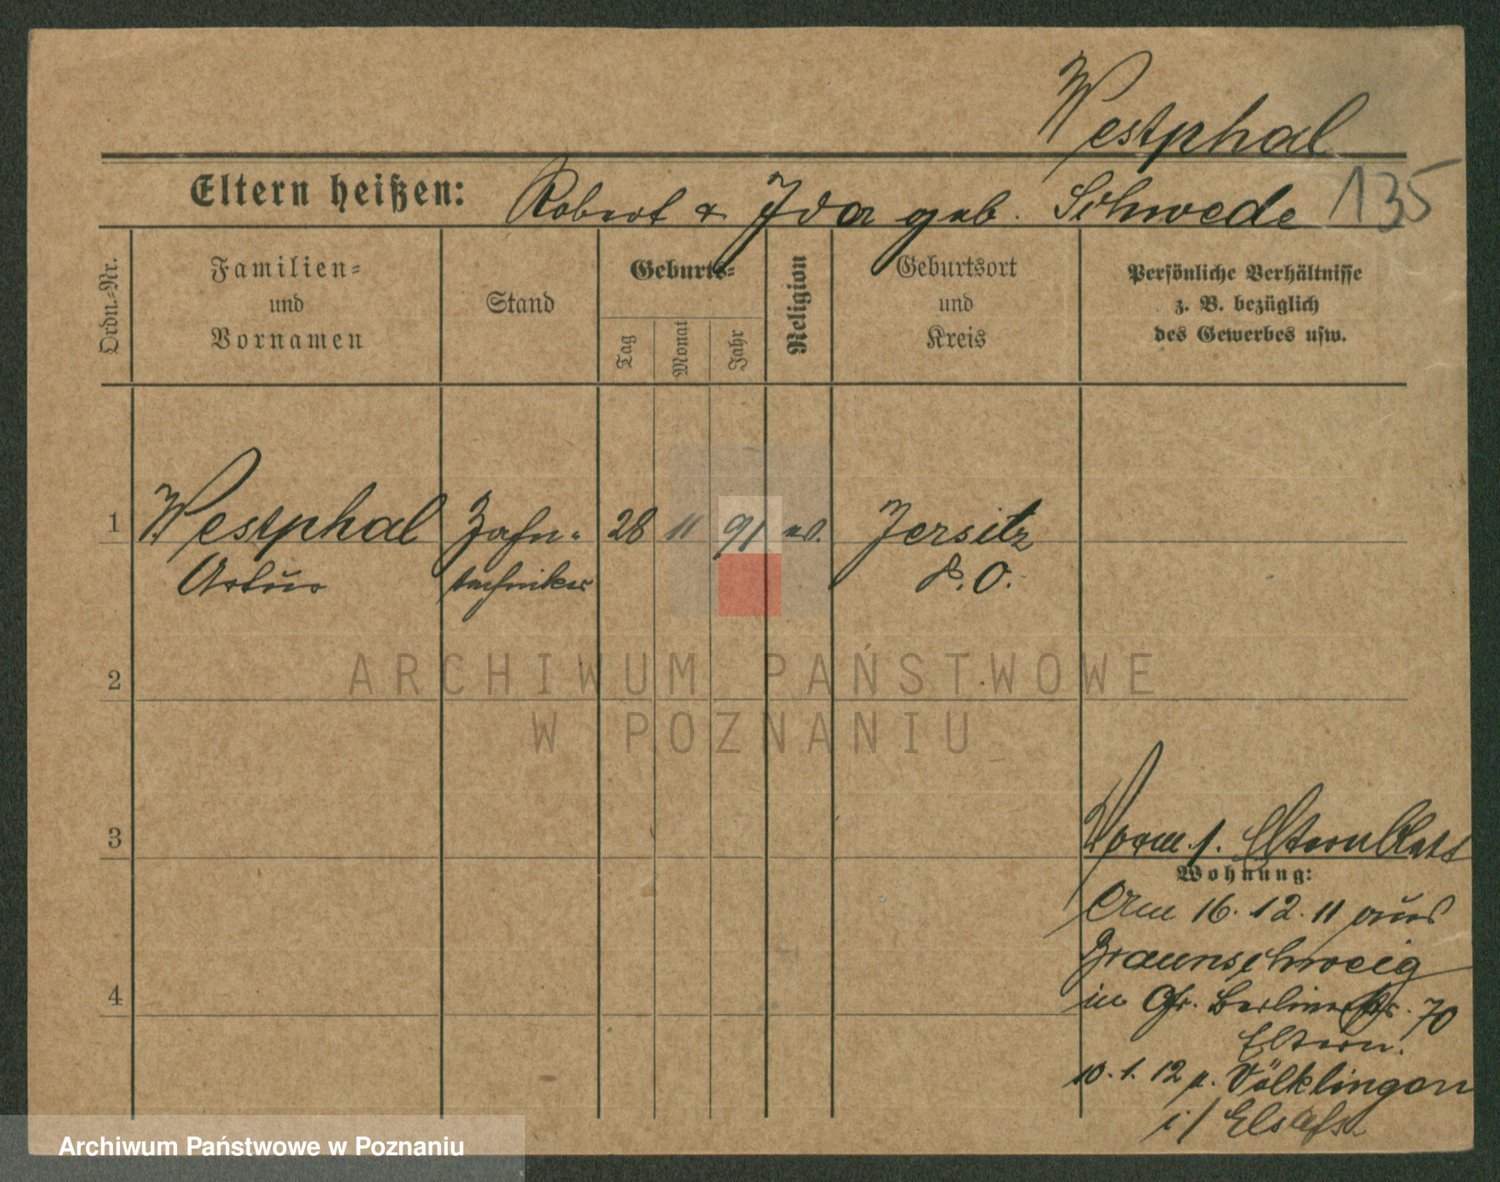 Westphal
Eltern heißen: Robert & Ida geb. Schwede 135
Ordn.-Nr.
Familien=
und
Vornamen
Stand
Geburts=
Tag
Monat
Jahr
Religion
Geburtsort
und
Kreis
Persönliche Verhältnisse
z. B. bezüglich
des Gewerbes usw.
1 Westphal Zahn= 28 11 91 ev. Jersitz
Artur techniker P. O.
2
3
Vorm. 1. Elternblatt
Wohnung:
Am 16. 12. 11 aus
Braunschweig
4
in Gr. Berlinerstr. 70
Eltern.
10. 1. 12 n. Völklingen
i/ Elsaß
ARCHIWUM PAŃSTWOWE
W POZNANIU
Archiwum Państwowe w Poznaniu